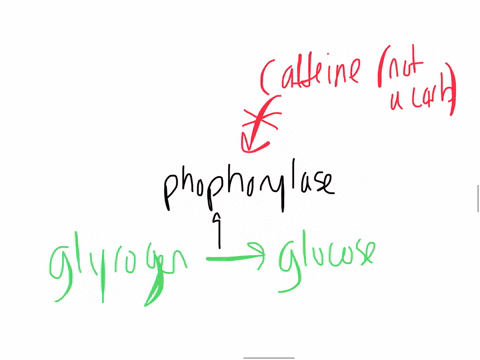 Caffeine (not
a carb)
phophorylase
glyrogen → glucose